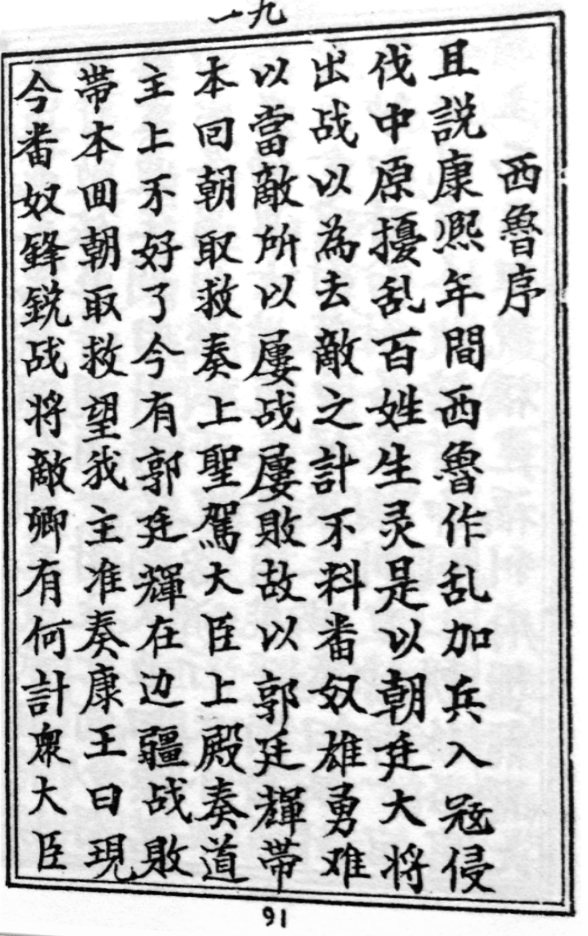 一九
西魯序
且説康熈年間西魯作乱加兵入冦侵
伐中原擾乱百姓生灵是以朝廷大将
出战以為去敵之計不料畨奴雄勇难
以當敵所以屢战屢敗故以郭廷輝帶
本回朝取救奏上聖駕大臣上殿奏道
主上不好了今有郭廷輝在边疆战敗
帶本囬朝取救望我主准奏康王曰現
今畨奴鋒鋭战将敵卿有何計衆大臣
91